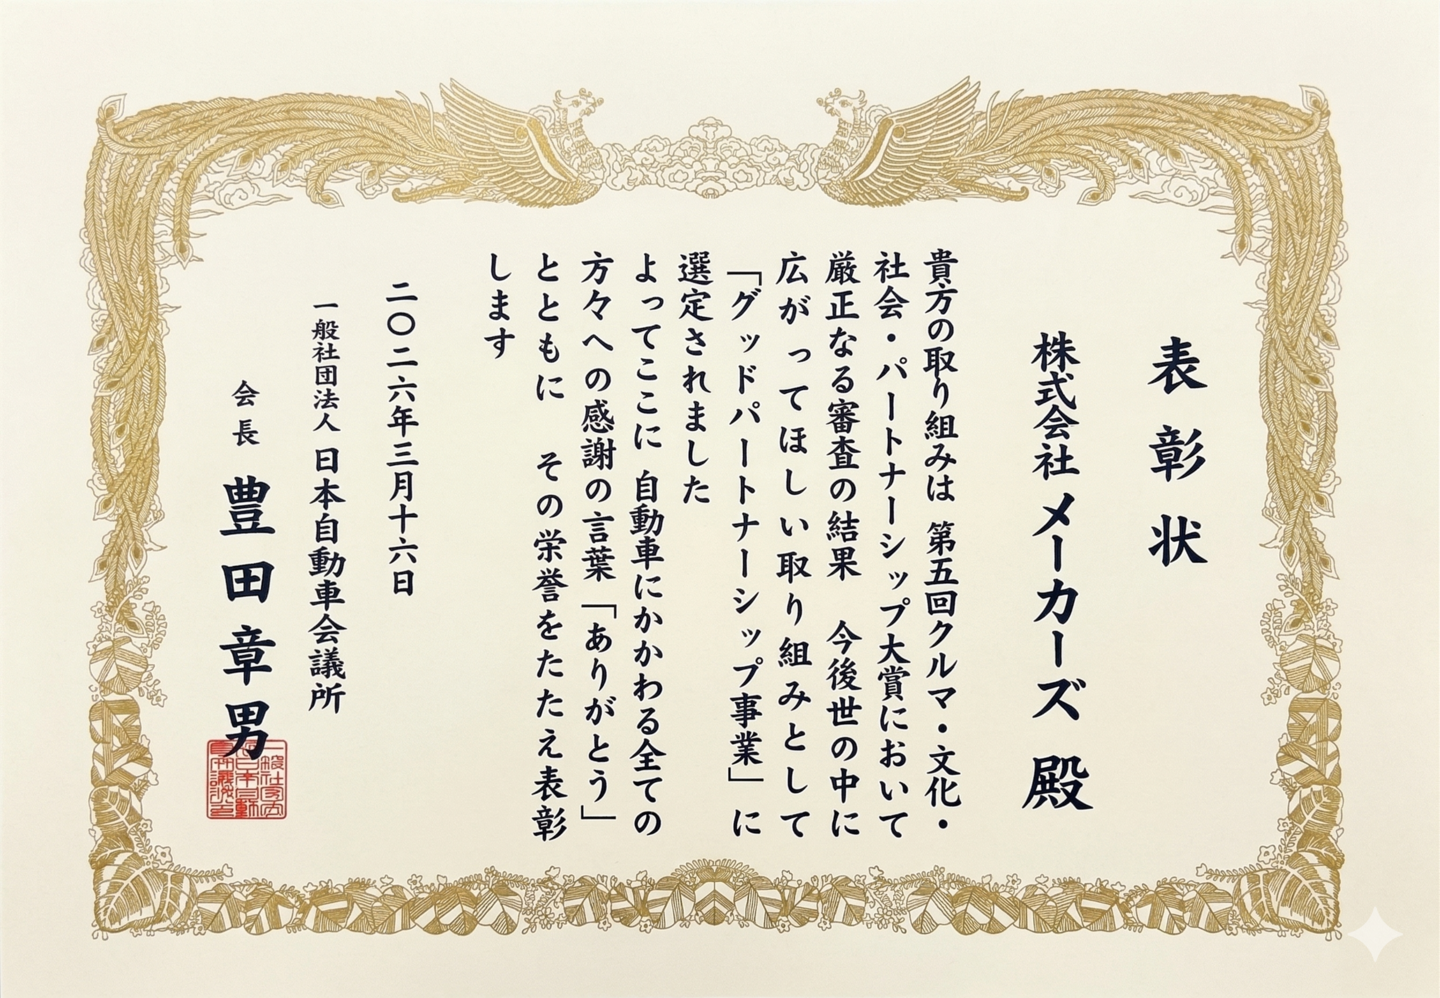 表彰状
株式会社 メーカーズ 殿
貴方の取り組みは 第五回クルマ・文化・
社会・パートナーシップ大賞において
厳正なる審査の結果 今後世の中に
広がってほしい取り組みとして
「グッドパートナーシップ事業」に
選定されました
よってここに 自動車にかかわる全ての
方々への感謝の言葉「ありがとう」
とともに その栄誉をたたえ表彰
します
二〇二六年三月十六日
一般社団法人 日本自動車会議所
会長 豊田章男